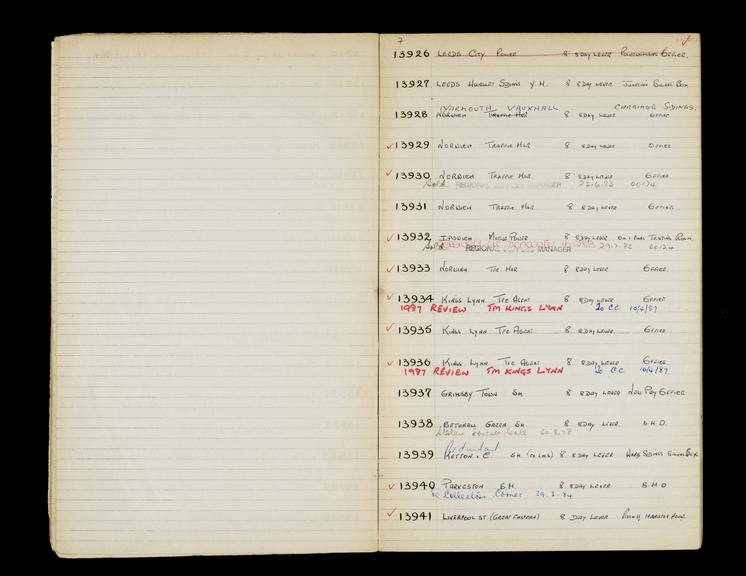 7
13926 LEEDS CITY POWER 8 8 DAY LEVER OFFICE.
13927 LEEDS HUNSLET Y.M. 8 8 DAY LEVER BOX
YARMOUTH VAUXHALL CARRIAGE SDINGS.
13928 NORWICH TRAFFIC MGR 8 8 DAY LEVER OFFICE
13929 NORWICH TRAFFIC MGR 8 8 DAY LEVER OFFICE
13930 NORWICH TRAFFIC MGR 8 8 DAY LEVER OFFICE
Sold REGIONAL SUPPLIES MANAGER 00174
13931 NORWICH TRAFFIC MGR 8 8 DAY LEVER OFFICE.
13932 IPSWICH POWER 8 8 DAY LEVER ROOM
Sold REGIONAL SUPPLIES MANAGER
13933 NORWICH TFC. MGR 8 8 DAY LEVER OFFICE.
13934 KINGS LYNN TFC AGENT 8 8 DAY LEVER OFFICE
1987 REVIEW TM KINGS LYNN To C.C. 10/4/87
13935 KINGS LYNN TFC AGENT 8 8 DAY LEVER OFFICE
13936 KINGS LYNN TFC AGENT 8 8 DAY LEVER OFFICE.
1987 REVIEW TM KINGS LYNN To C.C. 10/4/87
13937 GRIMSBY TOWN SM 8 8 DAY LEVER NEW PAY OFFICE
13938 BETHNAL GREEN SM. 8 8 DAY LEVER. S.M.O.
Stolen
Redundant
13939 KETTON . C SM. 8 8 DAY LEVER SDINGS SIGNAL BOX
13940 PARKESTON S.M. 8 8 DAY LEVER S.M.O
To Collectors Corner 29.2.84
13941 LIVERPOOL ST (GREAT EASTERN) 8 DAY LEVER